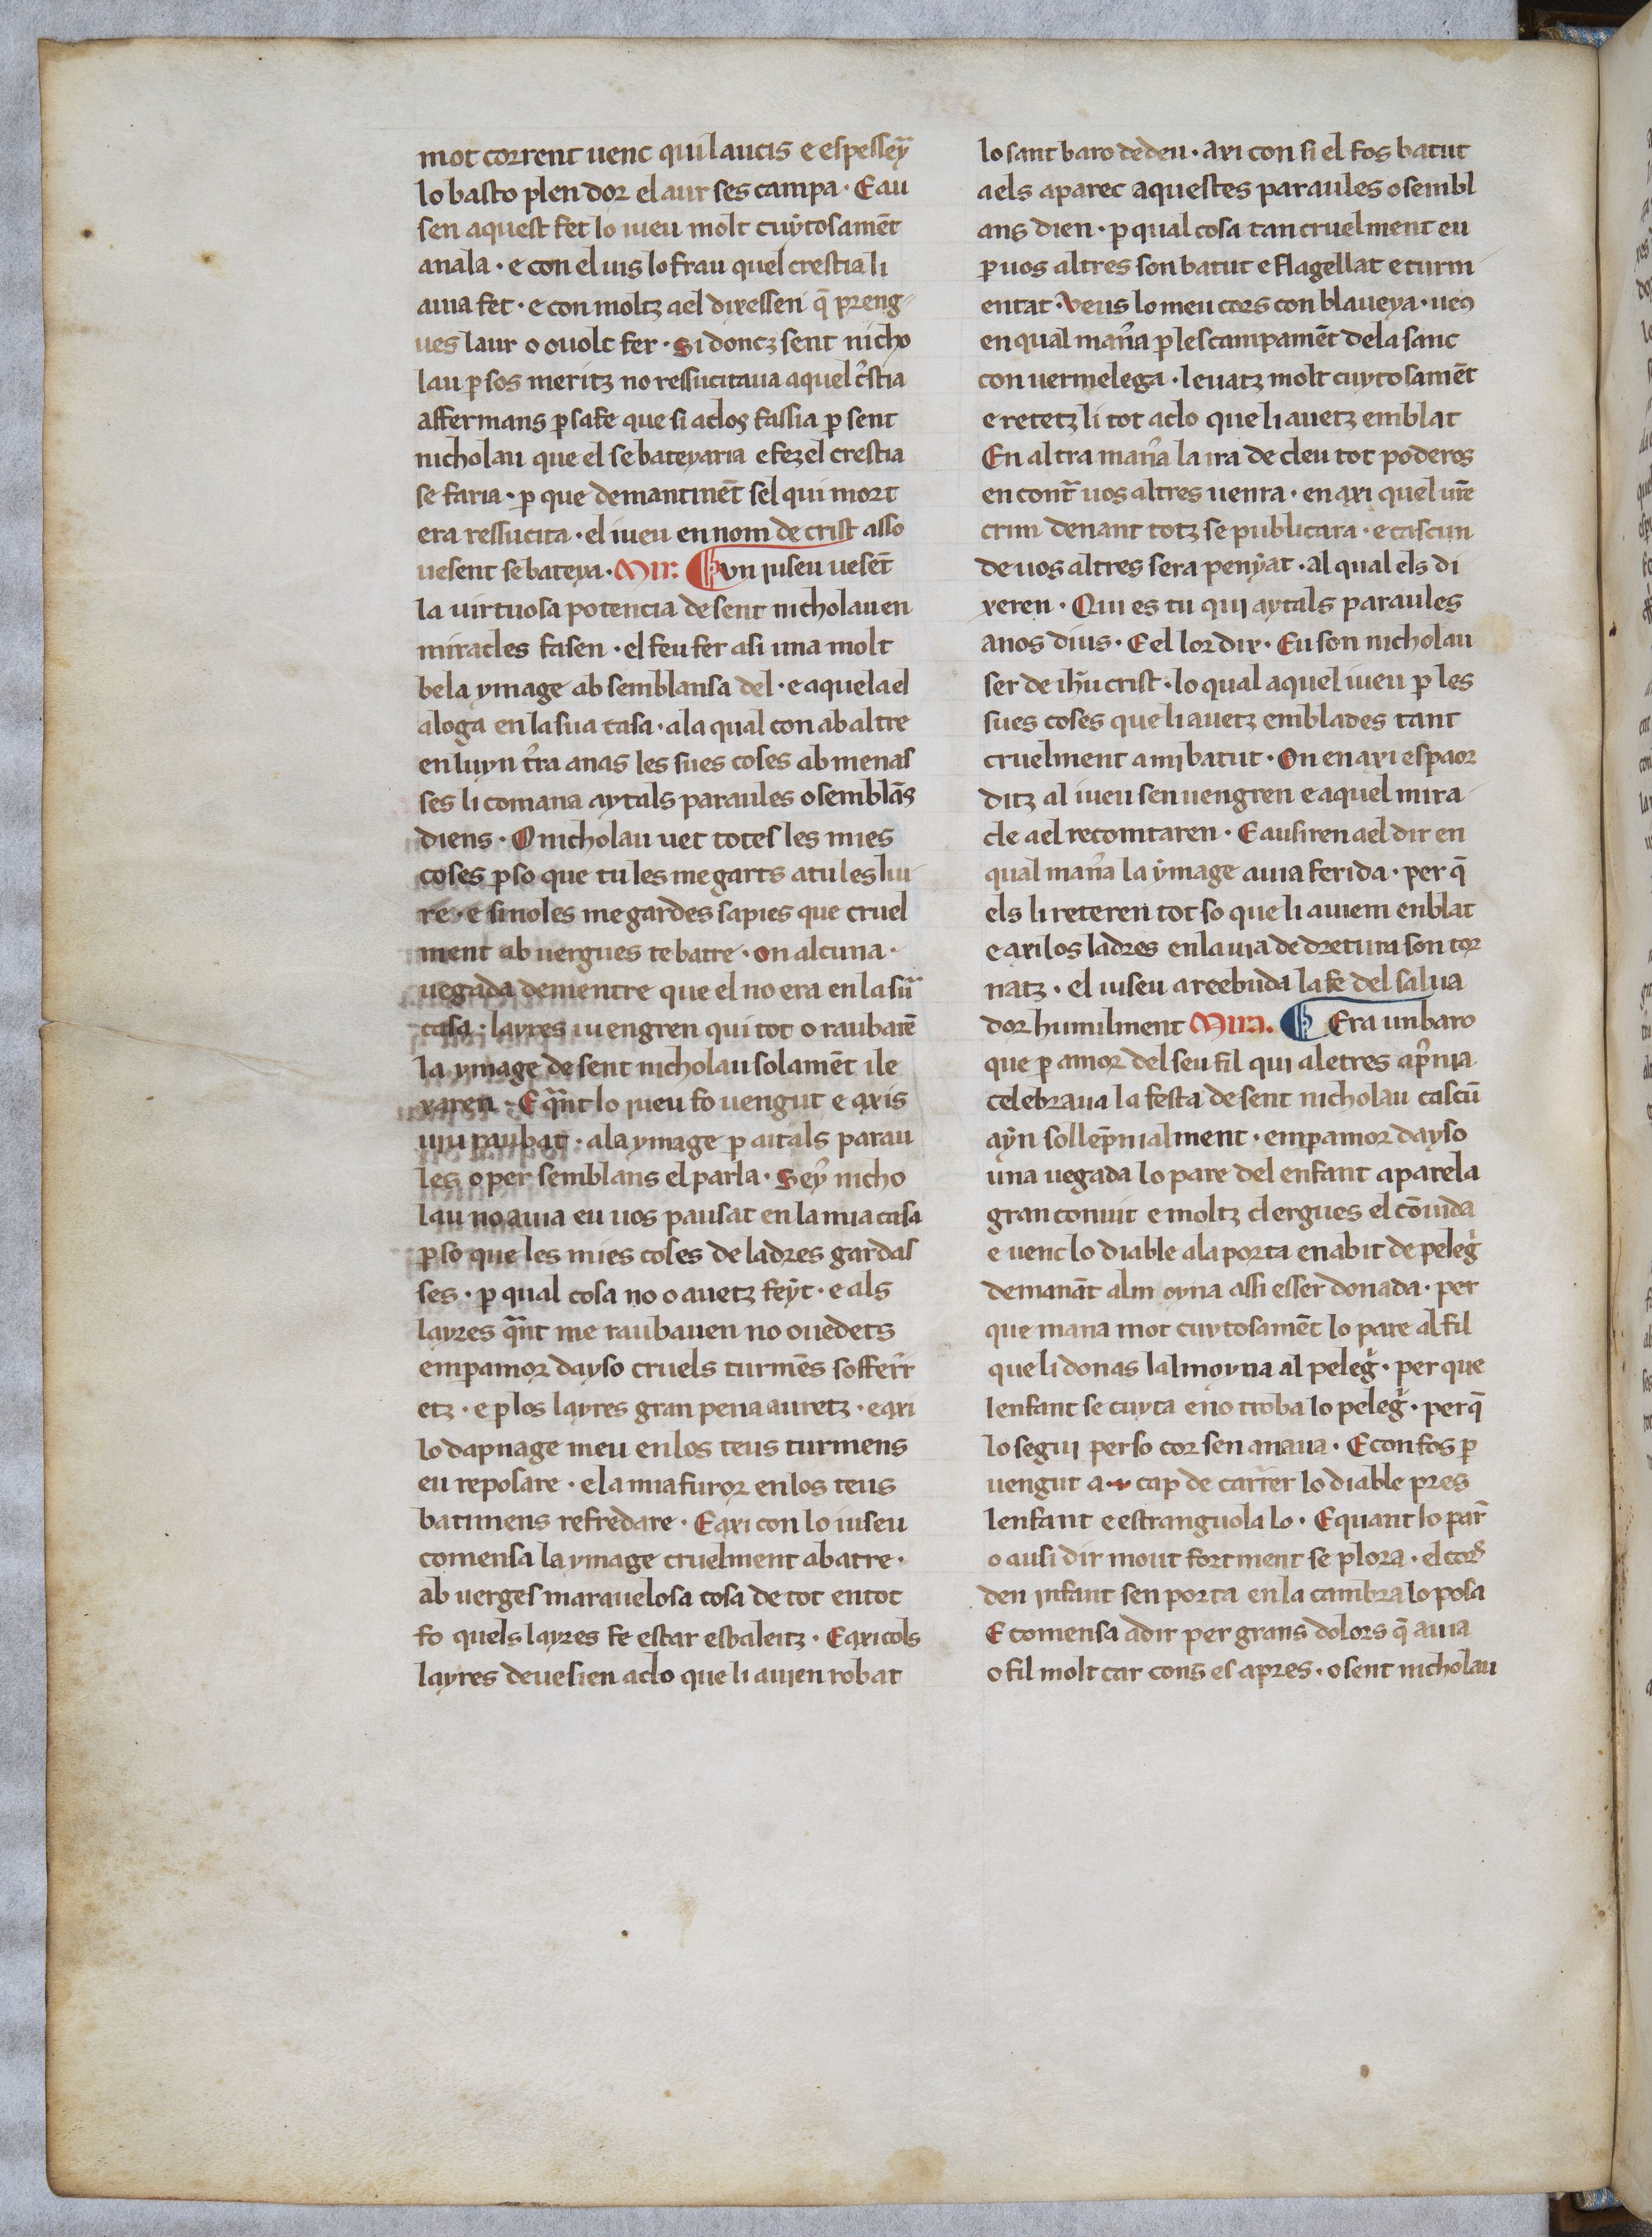 mot corrent uenc qui laucis e espessey̾a
lo basto plen dor el aur ses campa · Eau
sen aquest fet lo iueu molt cuytosamēt
anala · e con el uis lo frau quel crestia li
auia fet · e con moltz ael dixessen q̄ ꝑreng
ues laur o ouolc fer · Si doncz sent nicho
lau ꝑ sos meritz no ressucitaua aquel c̾stia
affermans ꝑ sa fe que si aclos fassia ꝑ sent
nicholau que el se bateyaria e fez el crestia
se faria · ꝑ que demantinēt sel qui mort
era ressucita · el iueu en nom de crist asso
uesent se bateya · Mir. Vn iuseu uesēt
la uirtuosa potencia de sent nicholau en
miracles fasen · el feu fer asi una molt
bela ymage ab semblansa del · e aquela el
aloga en la sua casa · ala qual con ab altre
en luyn t̾ra anas les sues coses ab menas
ses li comana aytals paraules o semblās
diens · O nicholau uet totes les mies
coses ꝑ so que tu les me garts a tu les liu
re · e si no les me gardes sapies que cruel
ment ab uergues te batre · on alcuna ·
uegada dementre que el no era en la su̾a
casa · layres iuengren qui tot o raubarē
la ymage de sent nicholau solamēt ile
xaren · E q̾nt lo iueu fo uengut e axis
uiu raubat · ala ymage ꝑ aitals parau
les o per semblans el parla · Sey̾ nicho
lau no auia eu uos pausat en la mia casa
ꝑ so que les mies coses de ladres gardas
ses · ꝑ qual cosa no o auetz feyt · e als
layres q̾nt me raubauen no ouedets
emꝑamor dayso cruels turmēs soffer̾r
etz · e ꝑ los layres gran pena auretz · e axi
lo dapnage meu en los teus turmens
eu reposare · e la mia furor en los teus
batimens refredare · E axi con lo iuseu
comensa la ymage cruelment abatre ·
ab uerges marauelosa cosa de tot en tot
fo quels layres fe estar esbaleitz · E axi cols
layres deuesien aclo que li auien robat
lo sant baro de deu · axi con si el fos batut
aels aparec aquestes paraules o sembl
ans dien · ꝑ qual cosa tan cruelment eu
ꝑ uos altres son batut e flagellat e turm
entat · Veus lo meu cors con blaueya · ueꝯ
en qual man̾a ꝑ lescampamēt de la sanc
con uermelega · leuatz molt cuytosamēt
e retetz li tot aclo que li auetz emblat
En altra man̾a la ira de deu tot poderos
en cont̾ uos altres uenra · en axi quel ur̄e
crim denant totz se publicara · e cascun
de uos altres sera penyat · al qual els di
xeren · Qui es tu qui aytals paraules
anos dius · E el lor dix · Eu son nicholau
ser de ih̄u crist · lo qual aquel iueu ꝑ les
sues coses que li auetz emblades tant
cruelment a mi batut · On en axi espaor
ditz al iueu sen uengren e aquel mira
cle ael recomtaren · E ausiren ael dir en
qual man̾a la ymage auia ferida · per q̄
els li reteren tot so que li auiem enblat
e axi los ladres en la uia de dretura son tor
natz · el iuseu a reebuda la fe del salua
dor humilment Mira. Era un baro
que ꝑ amor del seu fil qui a letres ap̾nia
celebraua la festa de sent nicholau cascū
ayn sollep̄nialment · emꝑamor dayso
una uegada lo pare del enfant aparela
gran conuit e moltz clergues el cōuida
e uenc lo diable ala porta en abit de peleg̾
demanāt almoyna assi esser donada · per
que mana mot cuytosamēt lo pare al fil
que li donas lalmoyna al peleg̾ · per que
lenfant se cuyta e no troba lo peleg̾ · per q̄
lo segui per so cor sen anaua · E con fos ꝑ
uengut a · + cap de carrer lo diable pres
lenfant e estranguola lo · E quant lo par̾
o ausi dir mout fortment se plora · el cor̾s
den infant sen porta en la cambra lo posa
E comensa adir per grans dolors q̄ auia
o fil molt car cons es apres · o sent nicholau